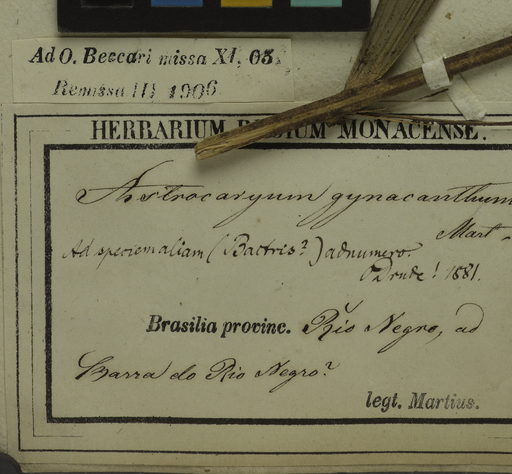 Ad O. Beccari missa XI. 05.
Remissa III 1906
HERBARIUM REGIUM MONACENSE.
Astrocaryum gynacanthum
Mart.
Ad speciem aliam (Bactris?) adnumero.
Drude! 1881.
Brasilia provinc. Rio Negro, ad
Barra do Rio Negro?
legt. Martius.